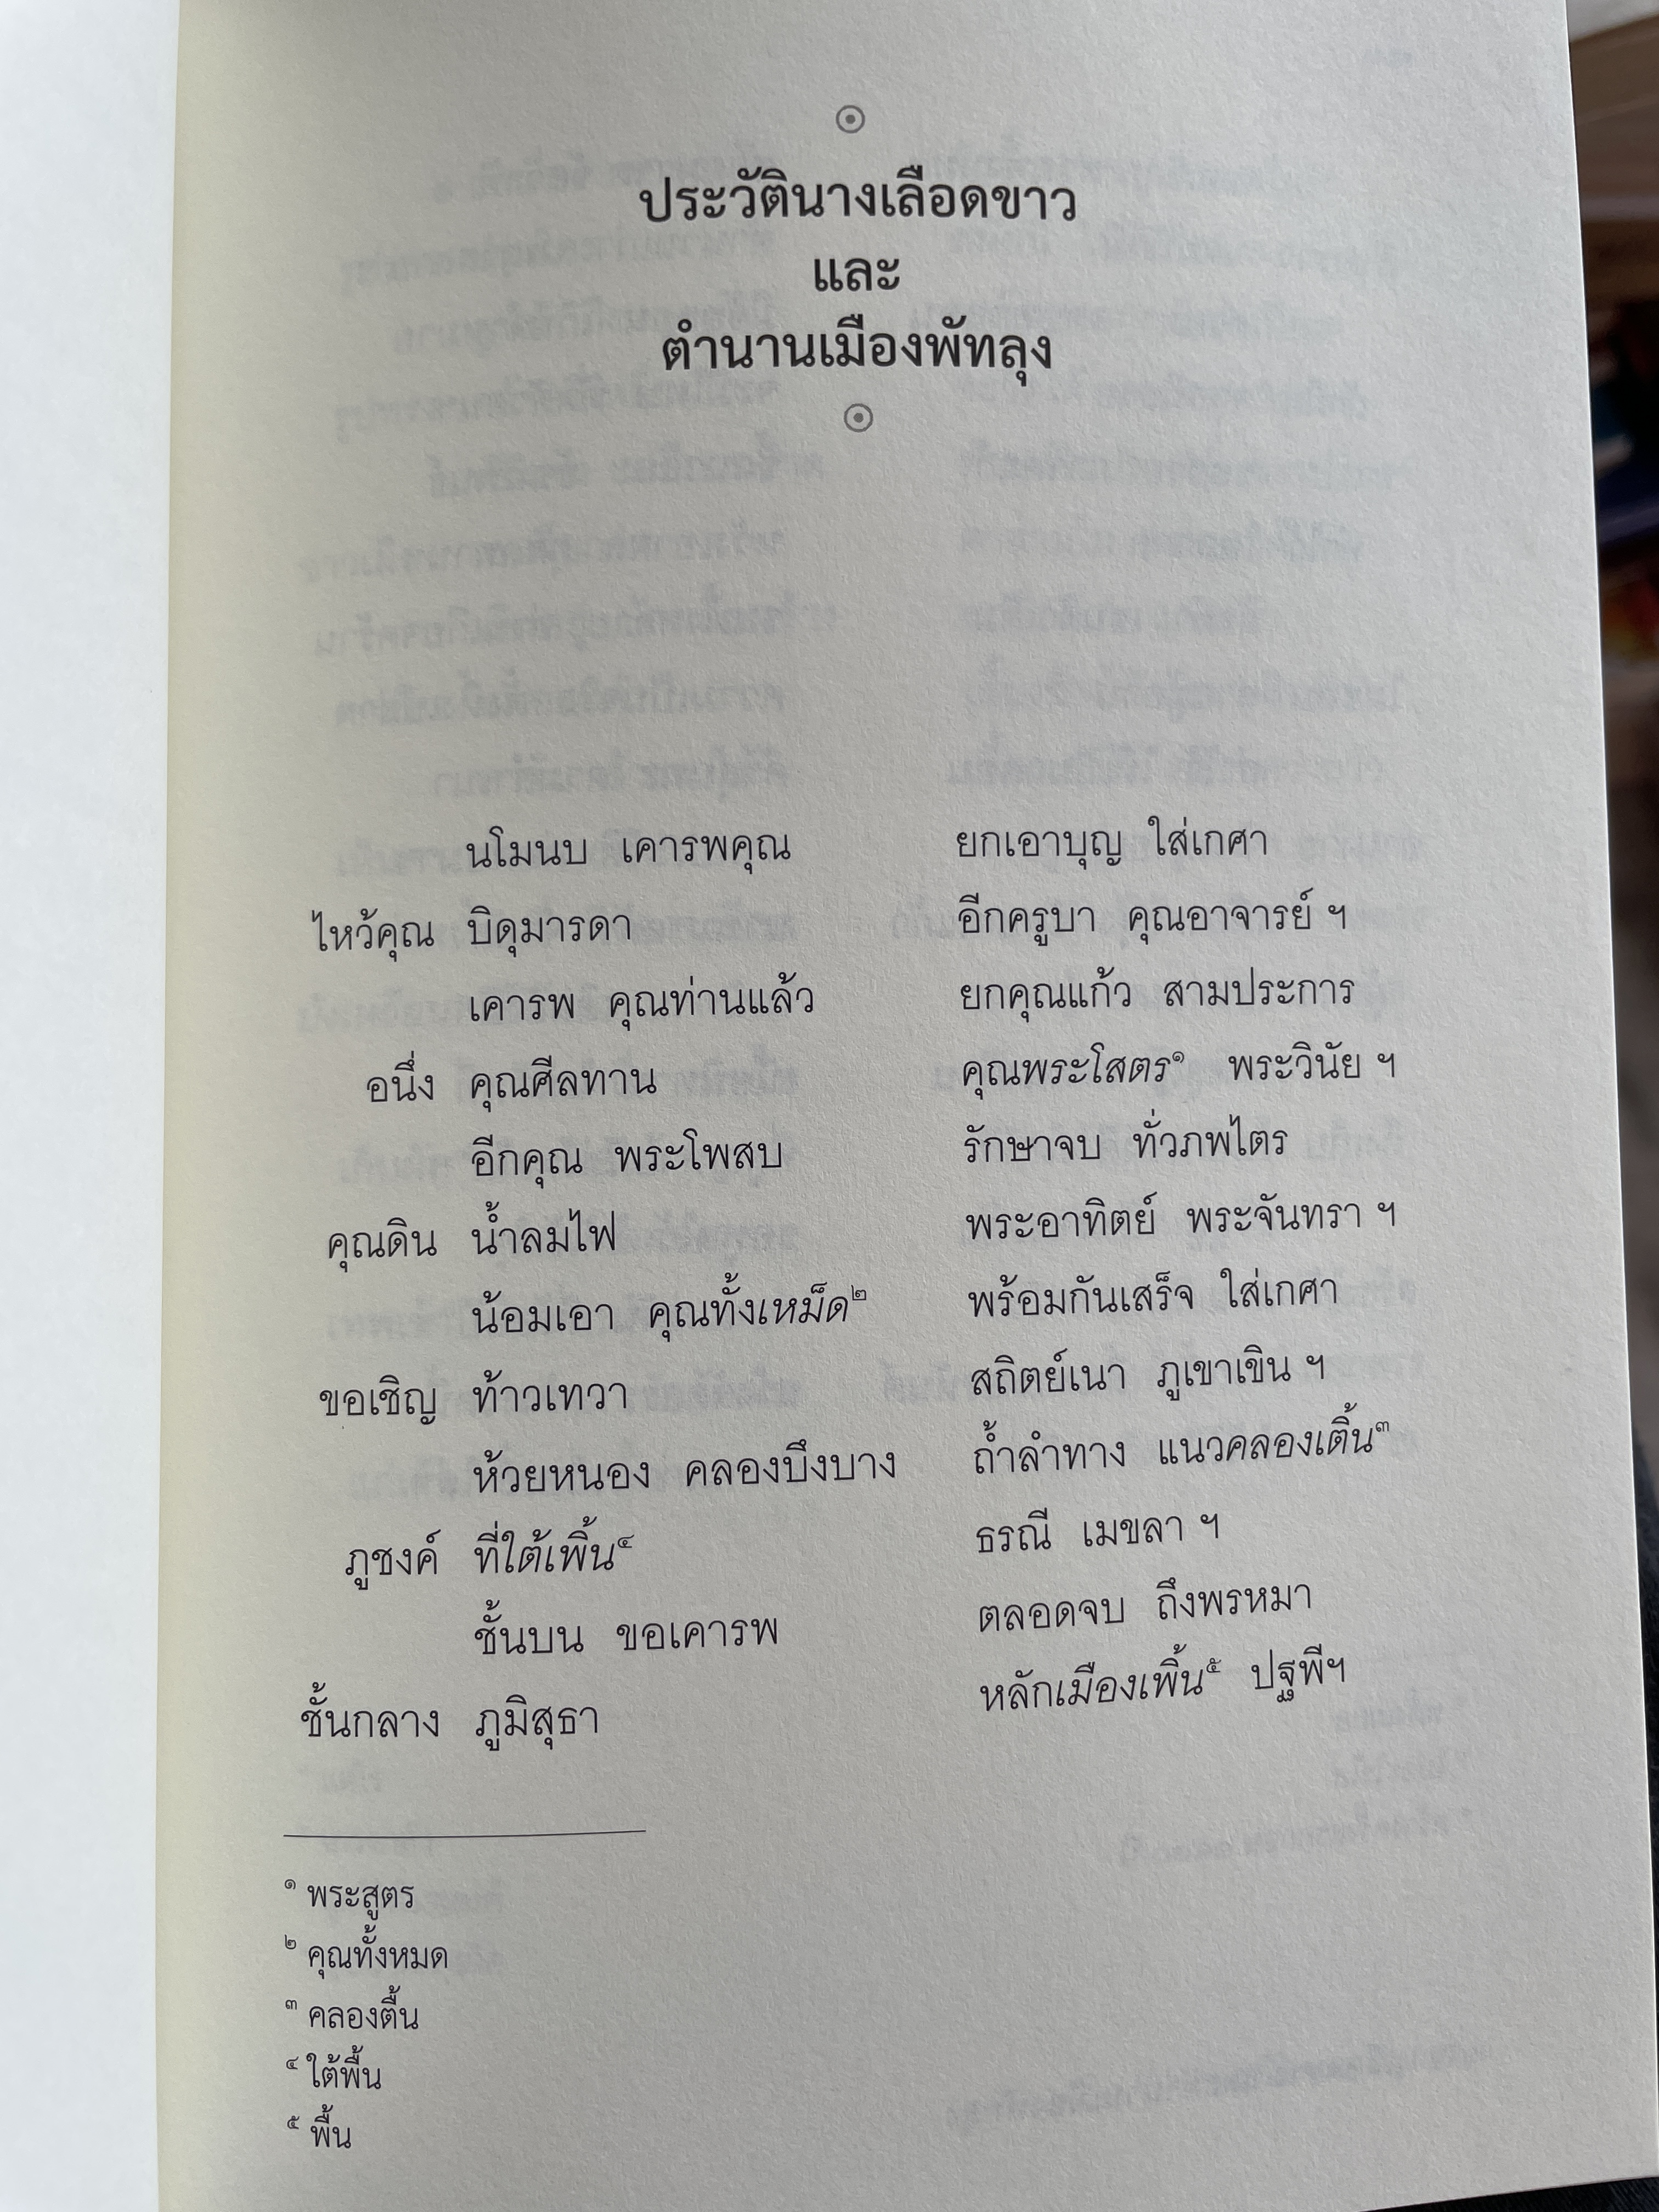 ประวัตินางเลือดขาว
และ
ตำนานเมืองพัทลุง
นโมนบ เคารพคุณ ยกเอาบุญ ใส่เกศา
ไหว้คุณ บิดุมารดา อีกครูบา คุณอาจารย์ ฯ
เคารพ คุณท่านแล้ว ยกคุณแก้ว สามประการ
อนึ่ง คุณศีลทาน คุณพระโสตร๑ พระวินัย ฯ
อีกคุณ พระโพสบ รักษาจบ ทั่วภพไตร
คุณดิน น้ำลมไฟ พระอาทิตย์ พระจันทรา ฯ
น้อมเอา คุณทั้งเหม็ด๒ พร้อมกันเสร็จ ใส่เกศา
ขอเชิญ ท้าวเทวา สถิตย์เนา ภูเขาเขิน ฯ
ห้วยหนอง คลองบึงบาง ถ้ำลำทาง แนวคลองเติ้น๓
ภูชงค์ ที่ใต้เพิ้น๔ ธรณี เมขลา ฯ
ชั้นบน ขอเคารพ ตลอดจบ ถึงพรหมา
ชั้นกลาง ภูมิสุธา หลักเมืองเพิ้น๕ ปฐพีฯ
๑ พระสูตร
๒ คุณทั้งหมด
๓ คลองตื้น
๔ ใต้พื้น
๕ พื้น